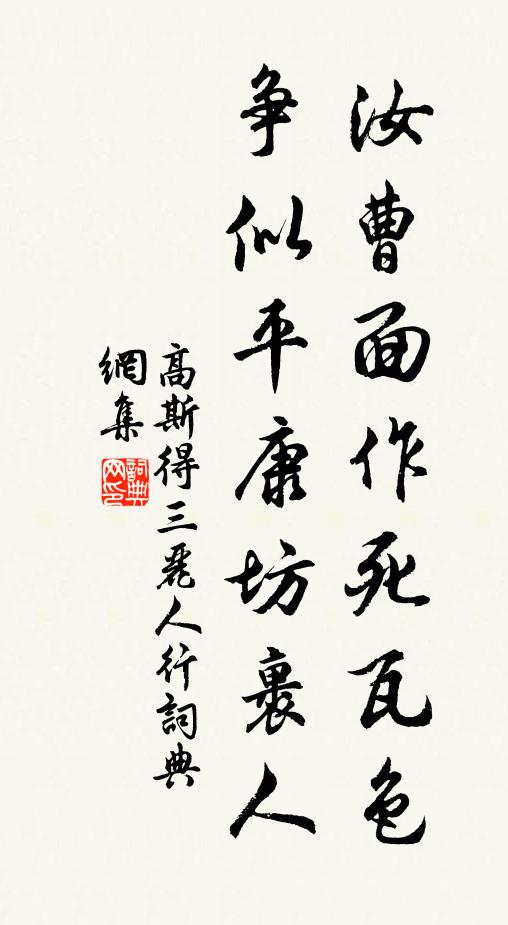 汝曹面作死瓦色
争似平康坊裏人
高斯得三麗人行詞典
網集
詞典网印